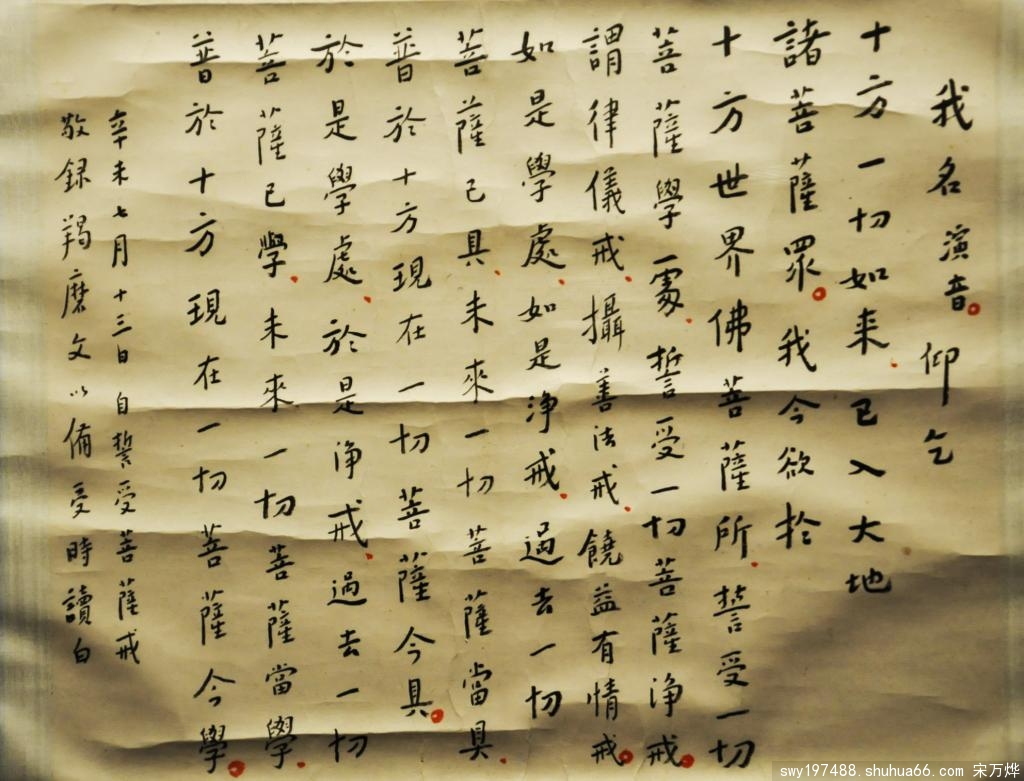 我名演音仰乞
十方一切如来已入大地
諸菩薩眾我今欲於
十方世界佛菩薩所誓受一切
菩薩學處誓受一切菩薩淨戒
謂律儀戒攝善法戒饒益有情戒
如是學處如是淨戒過去一切
菩薩已具未來一切菩薩當具
普於十方現在一切菩薩今具
於是學處於是淨戒過去一切
菩薩已學未來一切菩薩當學
普於十方現在一切菩薩今學
辛未七月十三日自誓受菩薩戒
敬録羯磨文以備受時讀白
swy197488.shuhua66.com 宋万烨